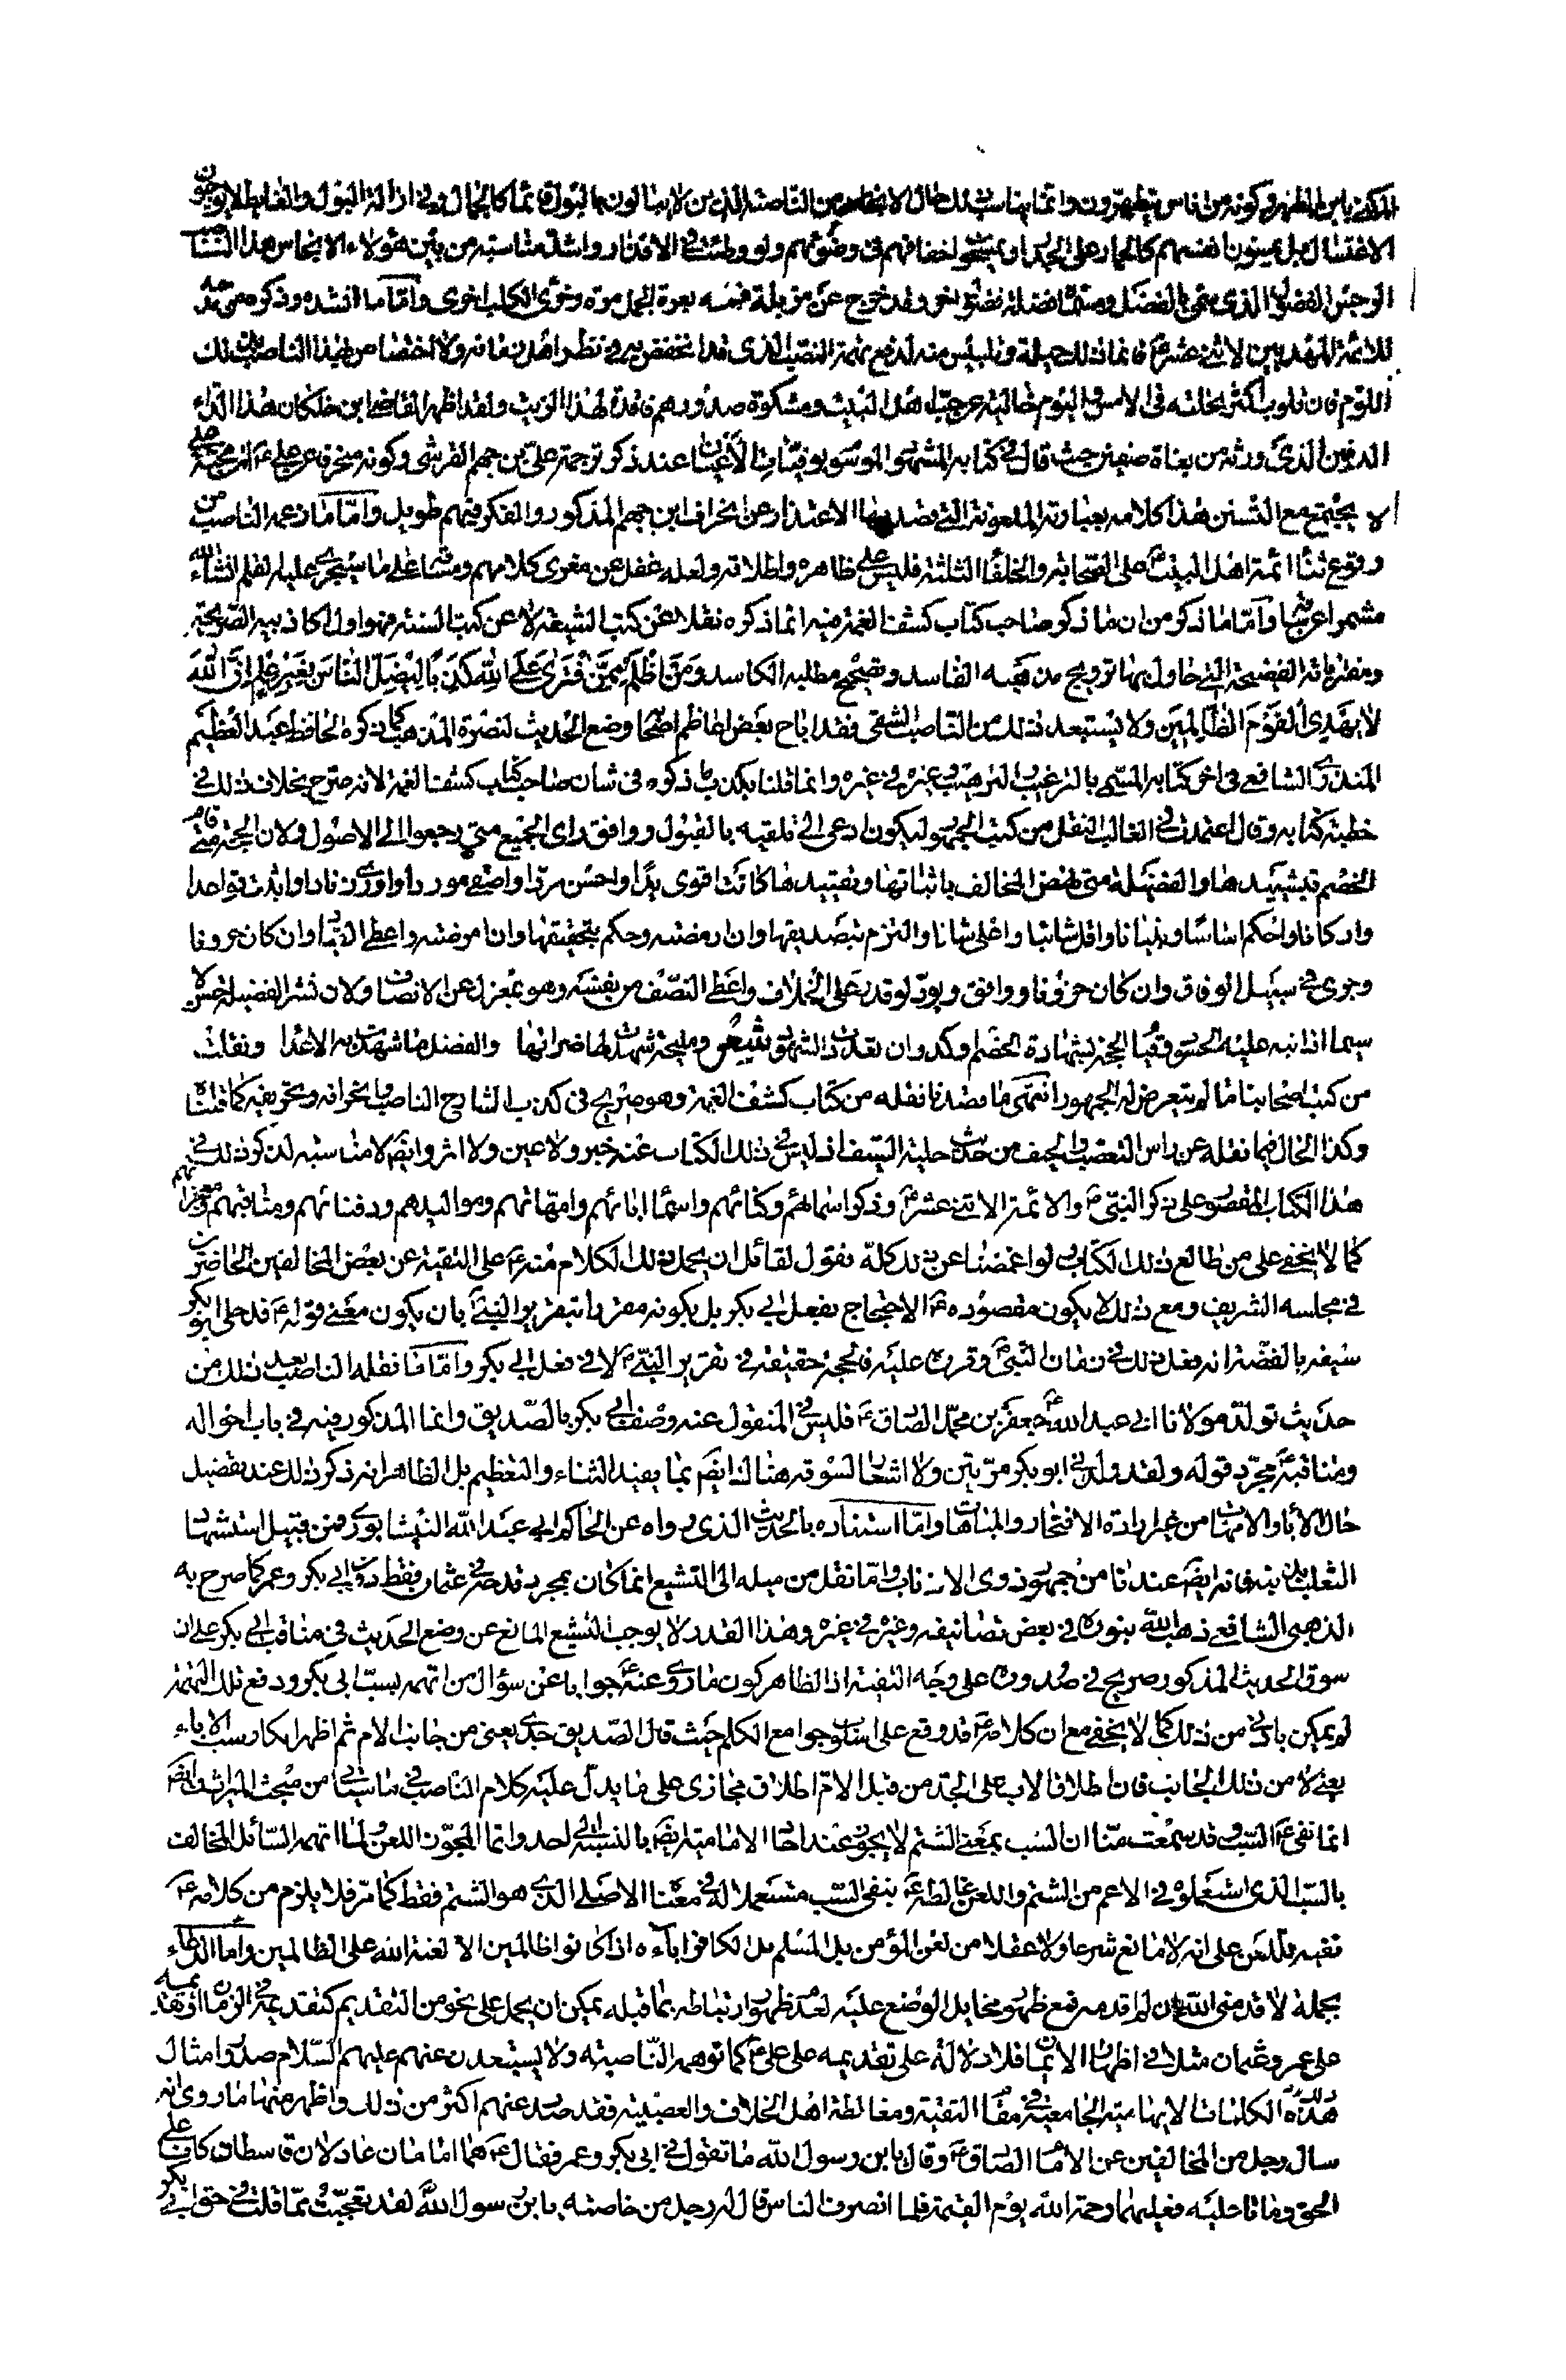 الاغتسال بل يمسون انفسهم كالحمار على الجدار او يمسحو اخفافهم في وضوئهم ولو وطئت في الاقذار واشد مناسبة من بين هؤلاء الانجاس هذا
الرجس الفضول الذي سمي بالفضل وقد خرج عن مزبلة فمه بعرة الجمل مرة وخرئ الكلب اخرى وامّا ما انشده وذكره من مدحه
للائمة المهديين الاثنى عشر فانما ذلك حيلة وتلبيس منه لدفع تهمة النصب الذي قد انخفض به في نظر اهل زمانه ولا اختصاص لهذا الناصب بذلك
اللوم فان قلوب اكثر اهل نحلته في الامس واليوم خالية عن حب اهل البيت ومشكوة صدورهم فاقدة لهذا الزيت ولقد اظهر القاضي ابن خلكان هذا الداء
الدفين الذي ورثه من بغاة صفين حيث قال في كتابه المشهور الموسوم بوفيات الأعيان عند ذكر ترجمة علي بن جهم القرشي وكونه منحرفا عن علي ان محبة علي
لا يجتمع مع التسنن هذا كلامه بعبارته الملعونة التي قصد بها الاعتذار عن انحراف ابن جهم المذكور والفكر فيهم طويل وامّا ما زعمه الناصب من
وقوع ثناء ائمة اهل البيت على الصحابة والخلفاء الثلثة فليس على ظاهره واطلاقه ولعله غفل عن مغزى كلامهم ومنشا على ما سيجرى عليه القلم انشاء الله
مشمرا عن ساق وامّا ما ذكره من ان ما ذكره صاحب كتاب كشف الغمة فيه انما ذكره نقلا عن كتب الشيعة لا عن كتب السنة فهو اول اكاذيبه الصريحة
ومفترياته الفضيحة التي حاول بها ترويج مذهبه الفاسد وتصحيح مطلبه الكاسد وَمَنْ أَظْلَمُ مِمَّنِ افْتَرَى عَلَى اللهِ كَذِبًا لِيُضِلَّ النَّاسَ بِغَيْرِ عِلْمٍ اِنَّ اللهَ
لَا يَهْدِي الْقَوْمَ الظَّالِمِينَ ولا يستبعد ذلك من الناصب الشقي فقد اباح بعض اعاظم اصحابه وضع الحديث لنصرة المذهب كما ذكره الحافظ عبد العظيم
المنذري الشافعي في اخر كتابه المسمى بالترغيب والترهيب وغيره في غيره وانما قلنا بكذب ما ذكره في شان صاحب كتاب كشف الغمة لانه صرح بخلاف ذلك في
خطبة كتابه وقال اعتمدت في الغالب النقل من كتب الجمهور ليكون ادعى الى تلقيه بالقبول ووافق راى الجميع متى رجعوا الى الاصول ولان الحجة متى قام
الخصم بتشييدها والفضيلة متى نهض المخالف باثباتها وتقييدها كانت اقوى يدا واحسن مردا واصفى موردا واورى زنادا واثبت قواعدا
واركانا واحكم اساسا وبنيانا واقل شانيا واعلى شانا والتزم بتصديقها وان ارمضته وحكم بتحقيقها وان امرضته واعطى القياد وان كان حرونا
وجرى في سبيل الوفاق وان كان حرونا ووافق ويود لو قدر على الخلاف واعطى النصف من نفسه وهو بمعزل عن الانصاف ولان نشر الفضيلة حسن لا
سيما اذا نبه عليه الحسود وقيام الحجة بشهادة الخصم اوكد وان تعددت الشهود شعر ومليحة شهدت لها ضراتها والفضل ما شهدت به الاعدا ونقلت
من كتب اصحابنا ما لم يتعرض له الجمهور انتهى ما قصدنا نقله من كتاب كشف الغمة وهو صريح في كذب الشارح الناصب وانحرافه وتحريفه كما قلناه
وكذا الحال فيما نقله عن راس التعصب والحيف من حديث حلية السيف اذ ليس في ذلك الكتاب عنه خبر ولا عين ولا اثر وايضا لا مناسبة لذكر ذلك في
هذا الكتاب المقصور على ذكر النبي والائمة الاثنى عشر وذكر اسمائهم وكنائهم واسماء ابائهم وامهاتهم ومواليدهم ودفنائهم ومناقبهم ومعجزاتهم
كما لا يخفى على من طالع ذلك الكتاب ولو اغمضنا عن ذلك كله نقول لقائل ان يحمل ذلك الكلام منه على التقية عن بعض المخالفين الحاضرين
في مجلسه الشريف ومع ذلك لا يكون مقصوده الاحتجاج بفعل ابي بكر بل بكونه مقررا بتقرير النبي بان يكون معنى قوله قد حلى ابو بكر
سيفه بالفضة انه فعل ذلك في زمان النبي وقرره عليه فالحجة حقيقة في تقرير النبي لا في فعل ابي بكر وامّا ما نقله الناصب بعيد ذلك من
حديث تولد مولانا ابي عبد الله جعفر بن محمد الصادق فليس في المنقول عنه وصف ابي بكر بالصديق وانما المذكور فيه في باب احواله
ومناقبه مجرد قوله ولقد ولدني ابو بكر مرتين ولا اشعار لسوقه هناك ايضا بما يفيد الثناء والتعظيم بل الظاهر انه ذكر ذلك عند تفضيل
حال الأباء والامهات من غير ارادة الافتخار والمباهاة وامّا استناره بالحديث الذي رواه عن الحاكم ابي عبد الله النيشابوري فمن قبيل استشهاد
الثعلب بذنبه فانه ايضا عندنا من جمهور ذوى الاذناب وامّا نقل من ميله الى التشيع انما كان بمجرد قدحه في عثمان فقط دون ابي بكر وعمر كما صرح به
الذهبي الشافعي ذهب الله بنوره في بعض تصانيفه وغيره في غيره وهذا القدر لا يوجب التشيع المانع عن وضع الحديث في مناقب ابي بكر على ان
سوق الحديث المذكور صريح في صدوره على وجه التقية اذ الظاهر كون ما روى عنه جوابا عن سؤال من اتهمه بسب ابي بكر ودفع تلك التهمة
لم يمكن بادنى من ذلك كما لا يخفى مع ان كلامه قد وقع على اسلوب جوامع الكلم حيث قال الصديق جدى يعنى من جانب الام ثم اظهر انكار سب الاباء
يعنى لا من ذلك الجانب فان اطلاق الاب على الجد من قبل الام اطلاق مجازى على ما يدل عليه كلام الناصب في ما سياتى من مبحث الميراث ايضا
انما نفى السب وقد سمعت منا ان السب بمعنى الشتم لا يجوز عند اصحابنا الامامية ايضا بالنسبة الى احد وانما المجوز اللعن لما اتهمه السائل المخالف
بالسب الذي استعملوه في الاعم من الشتم واللعن غالطه بنفى السب مستعملا له في معناه الاصلى الذي هو الشتم فقط كما مر فلا يلزم من كلامه
نفيه للعن على انه لا مانع شرعا ولا عقلا من لعن المؤمن بل المسلم بل الكافر اباءه اذا كانوا ظالمين الا لعنة الله على الظالمين وامّا الدعاء
بجملة لا قدمنى الله ان لم اقدمه فمع ظهور مخايل الوضع عليه لعدم ظهور ارتباطه بما قبله يمكن ان يحمل على نحو من التقديم كتقديمه في الزمان
على عمر وعثمان مثلا في اظهار الايمان فلا دلالة على تقديمه على علي كما توهمه الناصبة ولا يستبعد عنهم عليهم السلام صدور امثال
هذه الكلمات الايهامية الجامعة في مقام التقية ومغالطة اهل الخلاف والعصبية فقد صدر عنهم اكثر من ذلك واظهر منها ما روى انه
سال رجل من المخالفين عن الامام الصادق وقال يا بن رسول الله ما تقول في ابي بكر وعمر فقال هما امامان عادلان قاسطان كانا على
الحق وماتا عليه فعليهما رحمة الله يوم القيمة فلما انصرف الناس قال له رجل من خاصته يا بن رسول الله لقد تعجبت مما قلت في حق ابي بكر